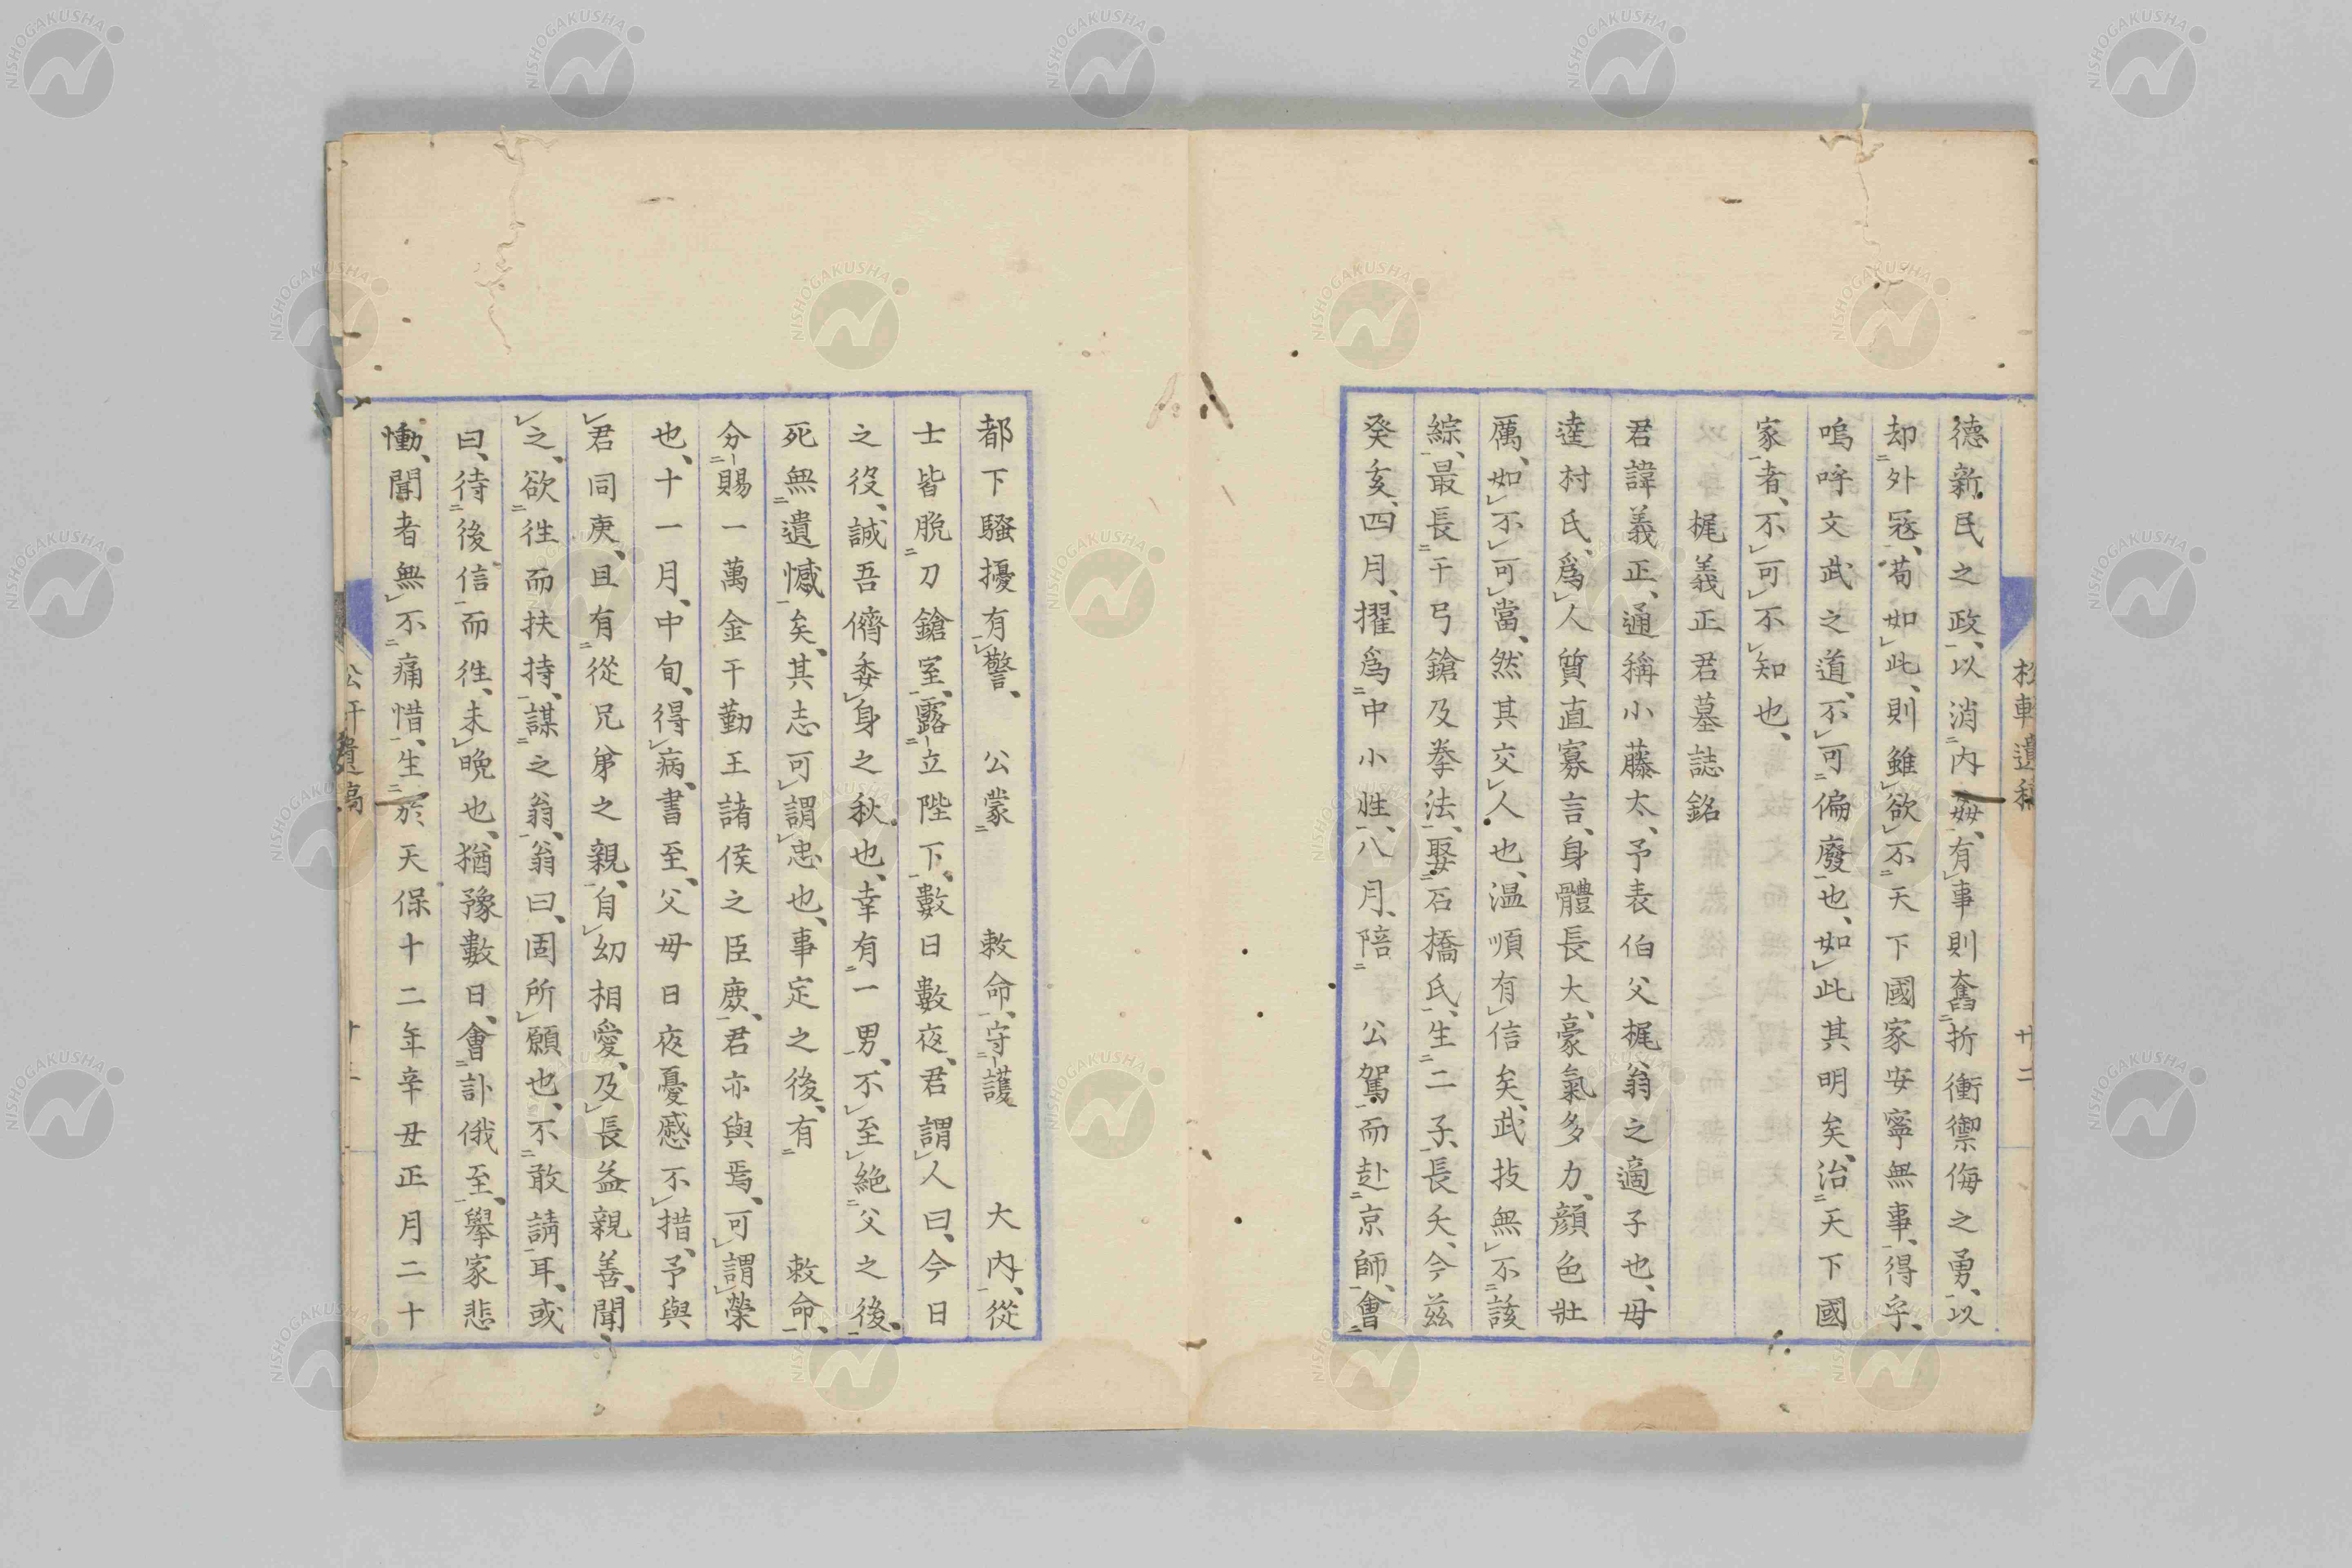 德新民之政、以消內姦、有事則奮折衝禦侮之勇、以
却外寇、苟如此、則雖欲不天下國家安寧無事、得乎、
嗚呼文武之道、不可偏廢也、如此其明矣、治天下國
家者、不可不知也、
梶義正君墓誌銘
君諱義正、通稱小藤太、予表伯父梶翁之適子也、母
達村氏、爲人質直寡言、身體長大、豪氣多力、顏色壯
厲、如不可當、然其交人也、温順有信矣、武技無不該
綜、最長干弓鎗及拳法、娶石橋氏、生二子、長夭、今玆
癸亥、四月、擢爲中小性、八月、陪 公駕而赴京師、會
松軒遺稿 廿二
都下騷擾有警、 公蒙 敕命、守護 大內、從
士皆脫刀鎗室、露立陛下、數日數夜、君謂人曰、今日
之役、誠吾儕委身之秋也、幸有一男、不至絕父之後、
死無遺憾矣、其志可謂忠也、事定之後、有 敕命、
分賜一萬金干勤王諸侯之臣庶、君亦與焉、可謂榮
也、十一月、中旬、得病、書至、父母日夜憂慼不措、予與
君同庚、且有從兄弟之親、自幼相愛、及長益親善、聞
之、欲往而扶持、謀之翁、翁曰、固所願也、不敢請耳、或
曰、待後信而往、未晚也、猶豫數日、會訃俄至、舉家悲
慟、聞者無不痛惜、生於天保十二年辛丑正月二十
NISHOGAKUSHA